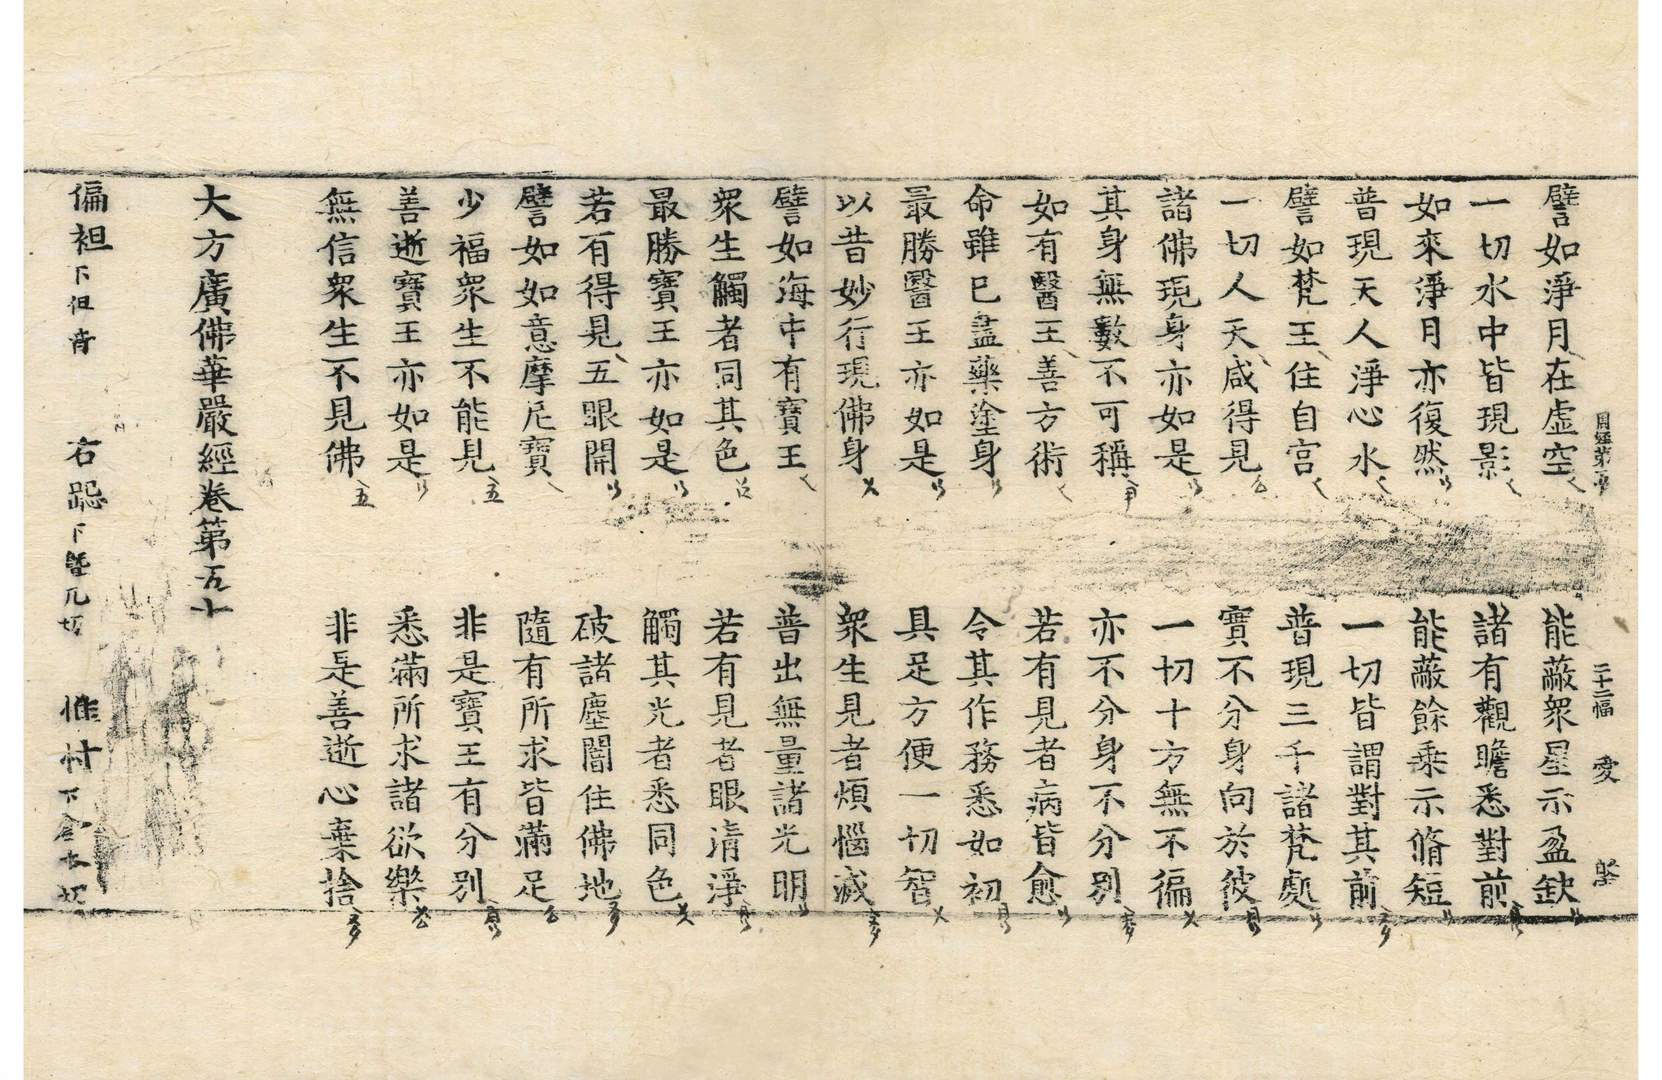 周經第五十　二十二幅　愛
譬如淨月在虛空　能蔽衆星示盈缺
一切水中皆現影　諸有觀瞻悉對前
如來淨月亦復然　能蔽餘乘示脩短
普現天人淨心水　一切皆謂對其前
譬如梵王住自宮　普現三千諸梵處
一切人天咸得見　實不分身向於彼
諸佛現身亦如是　一切十方無不徧
其身無數不可稱　亦不分身不分別
如有醫王善方術　若有見者病皆愈
命雖已盡藥塗身　令其作務悉如初
最勝醫王亦如是　具足方便一切智
以昔妙行現佛身　衆生見者煩惱滅
譬如海中有寶王　普出無量諸光明
衆生觸者同其色　若有見者眼清淨
最勝寶王亦如是　觸其光者悉同色
若有得見五眼開　破諸塵闇住佛地
譬如如意摩尼寶　隨有所求皆滿足
少福衆生不能見　非是寶王有分別
善逝寶王亦如是　悉滿所求諸欲樂
無信衆生不見佛　非是善逝心棄捨
大方廣佛華嚴經卷第五十
偏袒下但音　右跽下曁几切　惟忖下倉本切